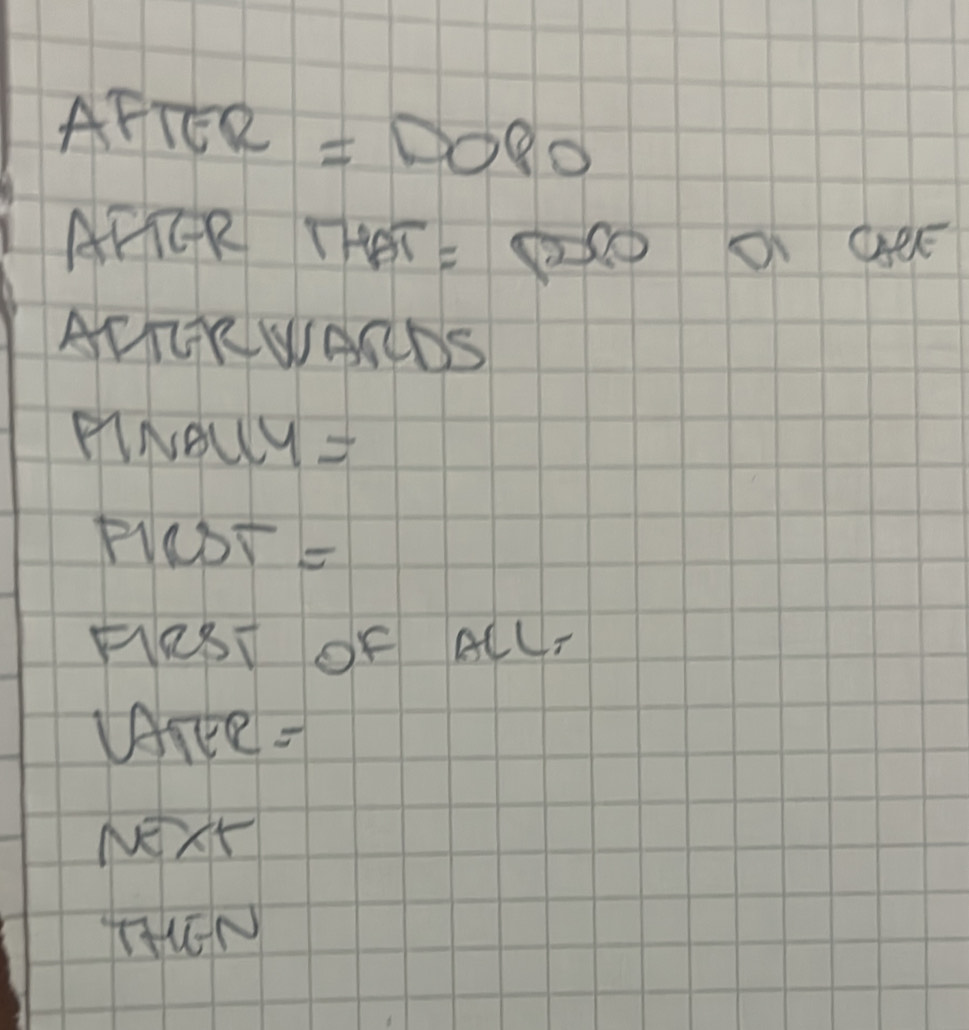 AFTER = DOPO
AFTER THAT = DOPO DI CHE
AFTERWARDS
FINALLY =
FIRST =
FIRST OF ALL =
LATER =
NEXT
THEN